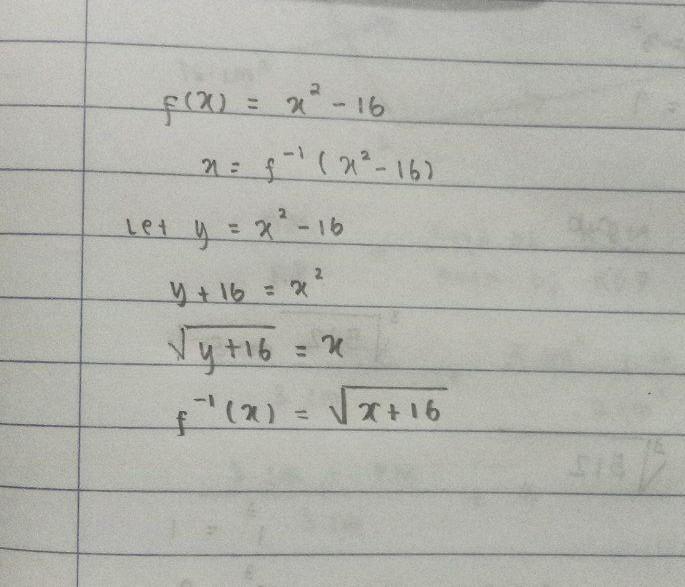 f(x) = x² - 16
x = f⁻¹(x² - 16)
Let y = x² - 16
y + 16 = x²
√(y+16) = x
f⁻¹(x) = √(x+16)